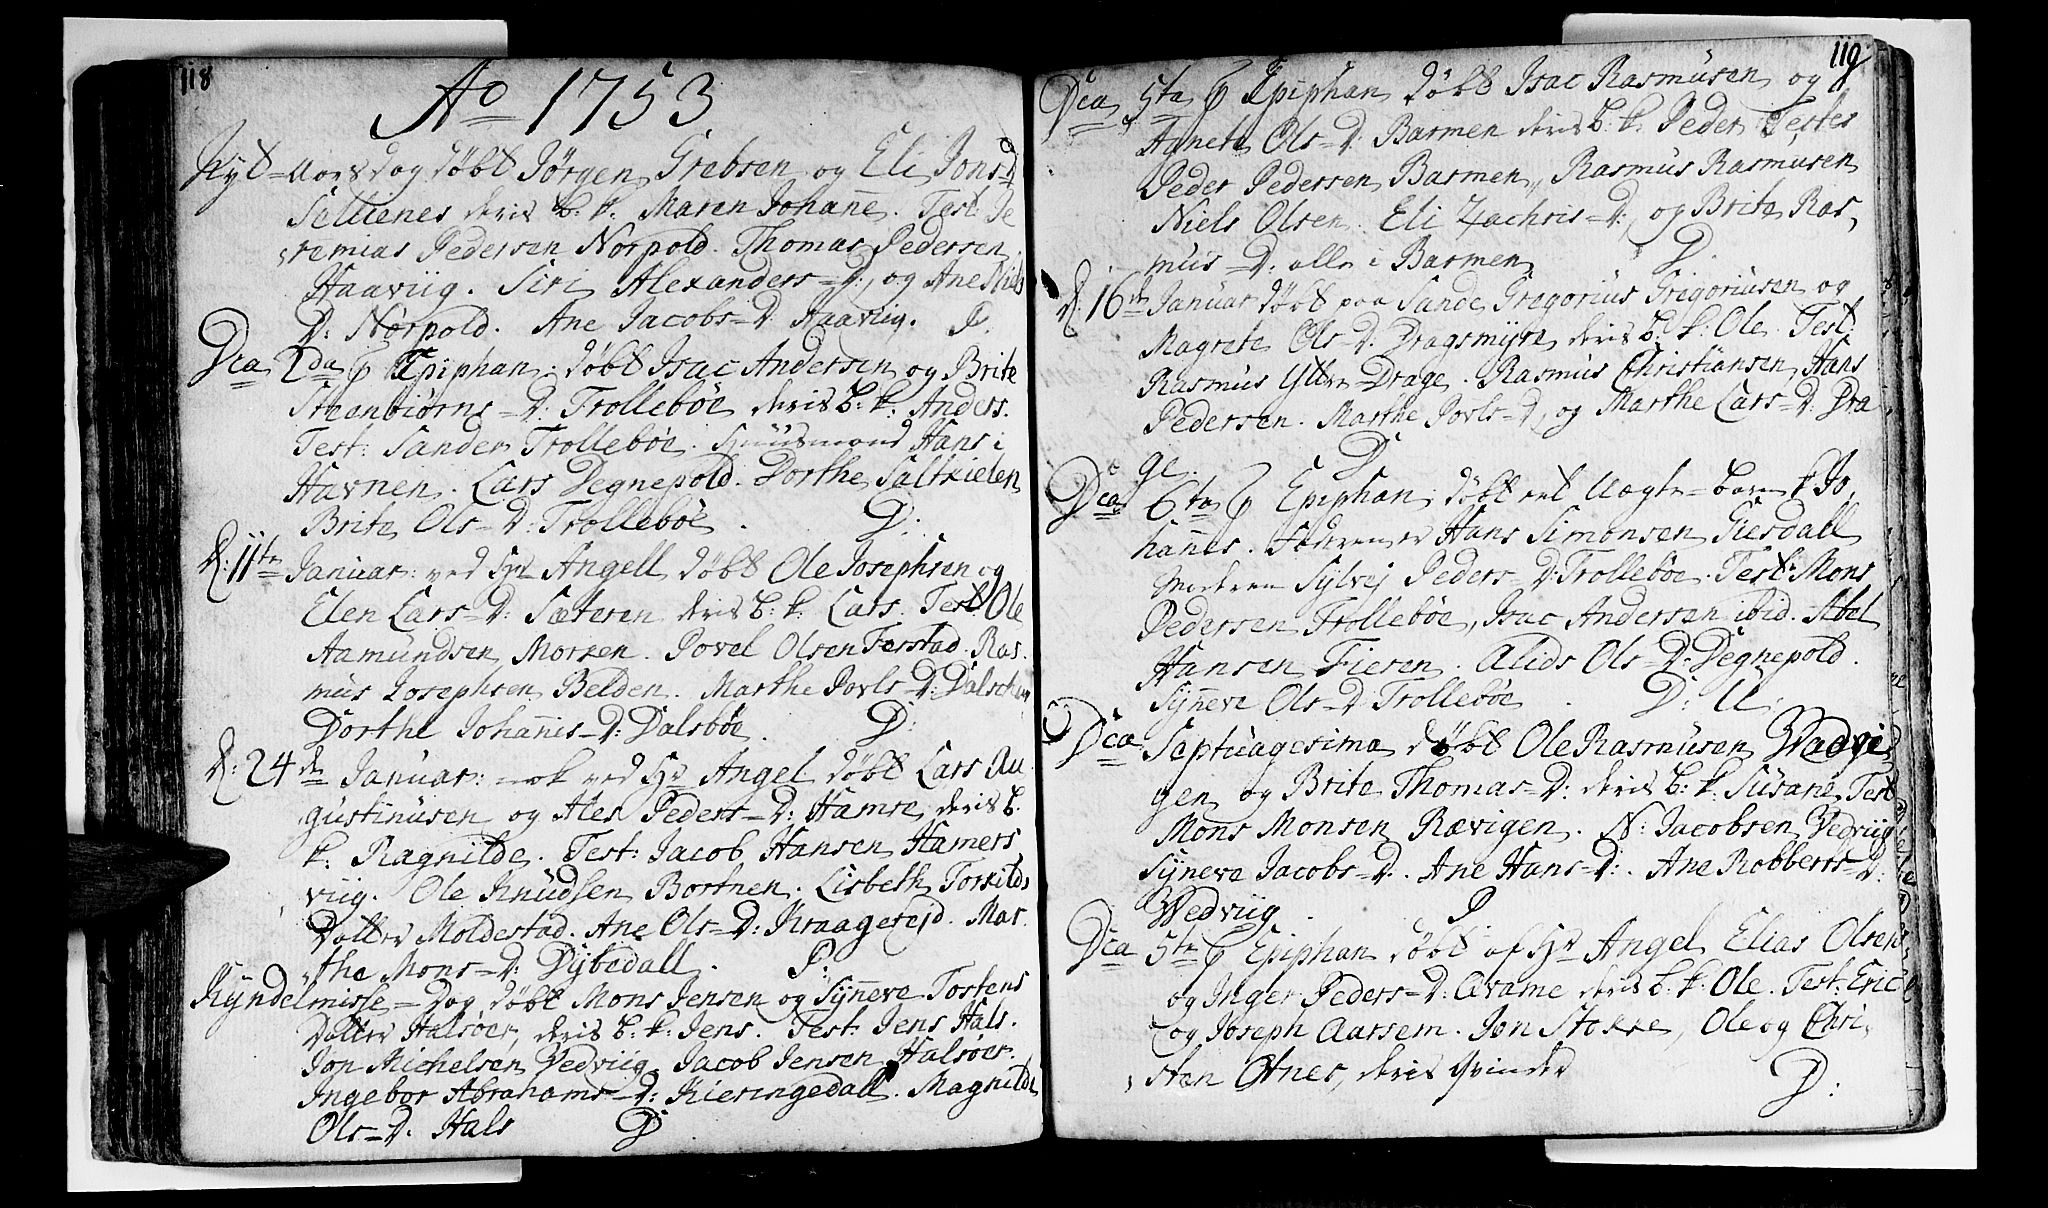 118
Ao 1753
Nyt-Aars dag döbt Jörgen Grebsen og Eli Jons-D
Sættenes deris b: k: Maren Johane. Test: Je
remias Pedersen Norpold. Thomas Pedersen
Haavüg. Siri Alexanders-D:, og Ane Niels
D: Norpold. Ane Jacobs-D. Haavüg. P.
Dca 2da p Epiphan: döbt Isac Andersen og Brite
Steenbiörns-D: Trolleböe deris b: k: Anders.
Test: Sander Trolleböe. Huusmand Hans i
Havnen. Lars Degnepold. Dorthe Saltkielen
Brite Ols-D: Trolleböe. D:
d: 11te Januar: ved Hr Angell döbt Ole Josephsen og
Elen Lars-D: Sæteren deris b: k: Lars. Test Ole
Aamundsen Morken. Povel Olsen Færstad. Ras-
mus Josephsen Belden. Marthe Povls-D: Dalseth
Dorthe Johannis-D: Dalsböe. D:
d: 24de Januar: nok ved Hr Angel döbt Lars Au-
gustinusen og Ales Peders-D: Hamre, deris b.
k: Ragnilde. Test: Jacob Hansen Hamers
vüg. Ole Knudsen Bortnen. Lisbeth Torkilds
Datter Moldestad. Ane Ols-D: Kraagelejd. Mar-
the Mons-D: Dybedall. P:
Kyndelmisse-Dag döbt Mons Jensen og Synneve Tostens
Datter Halsöer, deris b: k: Jens. Test: Jens Hals.
Jon Michelsen Vedvüg. Jacob Jensen Halsöer.
Ingebor Abrahams-D: Kieringedall. Magnilde
Ols-D. Hals D
119
Dca 5ta p Epiphan döbt Isac Rasmusen og
Agnete Ols-D: Barmen deris b: k: Peder Testes
Peder Pedersen Barmen, Rasmus Rasmusen
Niels Olsen. Eli Zachris-D:, og Brite Ras,
mus-D: alle i Barmen D.
d: 16de Januar döbt paa Sande Gregorius Grigoriusen og
Magrete Ols-D. Dragsmyre deris b: k: Ole Test:
Rasmus Yttre-Drage. Rasmus Christiansen, Hans
Pedersen. Marthe Povls-D, og Marthe Lars-D: Dra
ge. D
Dca 6ta p Epiphan: döbt eet Uægte-barn k Jo,
hannes. Faderen er Hans Simonsen Giesdall
Moderen Sylvej Peders-D: Trolleböe. Test: Mons
Pedersen Trolleböe, Isac Andersen ibid. Abel
Hansen Fieren. Alids Ols-D: Degnepold.
Synneve Ols-D Trolleböe. D: U.
Dca Septuagesima döbt Ole Rasmusen Rævi
gen og Brite Thomas-D: deris b: k: Susane, Test
Mons Monsen Rævigen. N: Jacobsen Vedvüg
Synneve Jacobs-D. Ane Hans-D:. Ane Robberts-D:
Vedvüg. P
Dca 5te p Epiphan döbt af Hr Angel Elias Olsen
og Inger Peders-D: Arame deris b: k: Ole. Test: Eric
og Joseph Aarsem. Jon Stokke, Ole og Chri,
sten Otnes, deris Qvinder D: